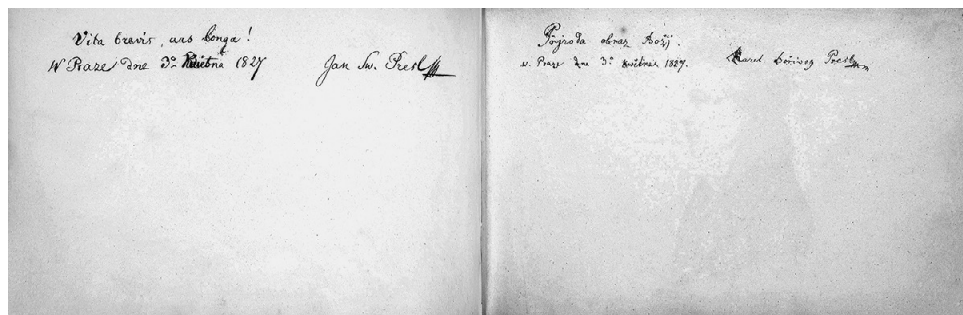 Vita brevis, ars longa!
W Praze dne 3º Kwětna 1827
Jan Sw. Presl
Přjroda obraz Božj.
w. Praze dne 3º kwětna 1827.
Karel Bořiwog Presl